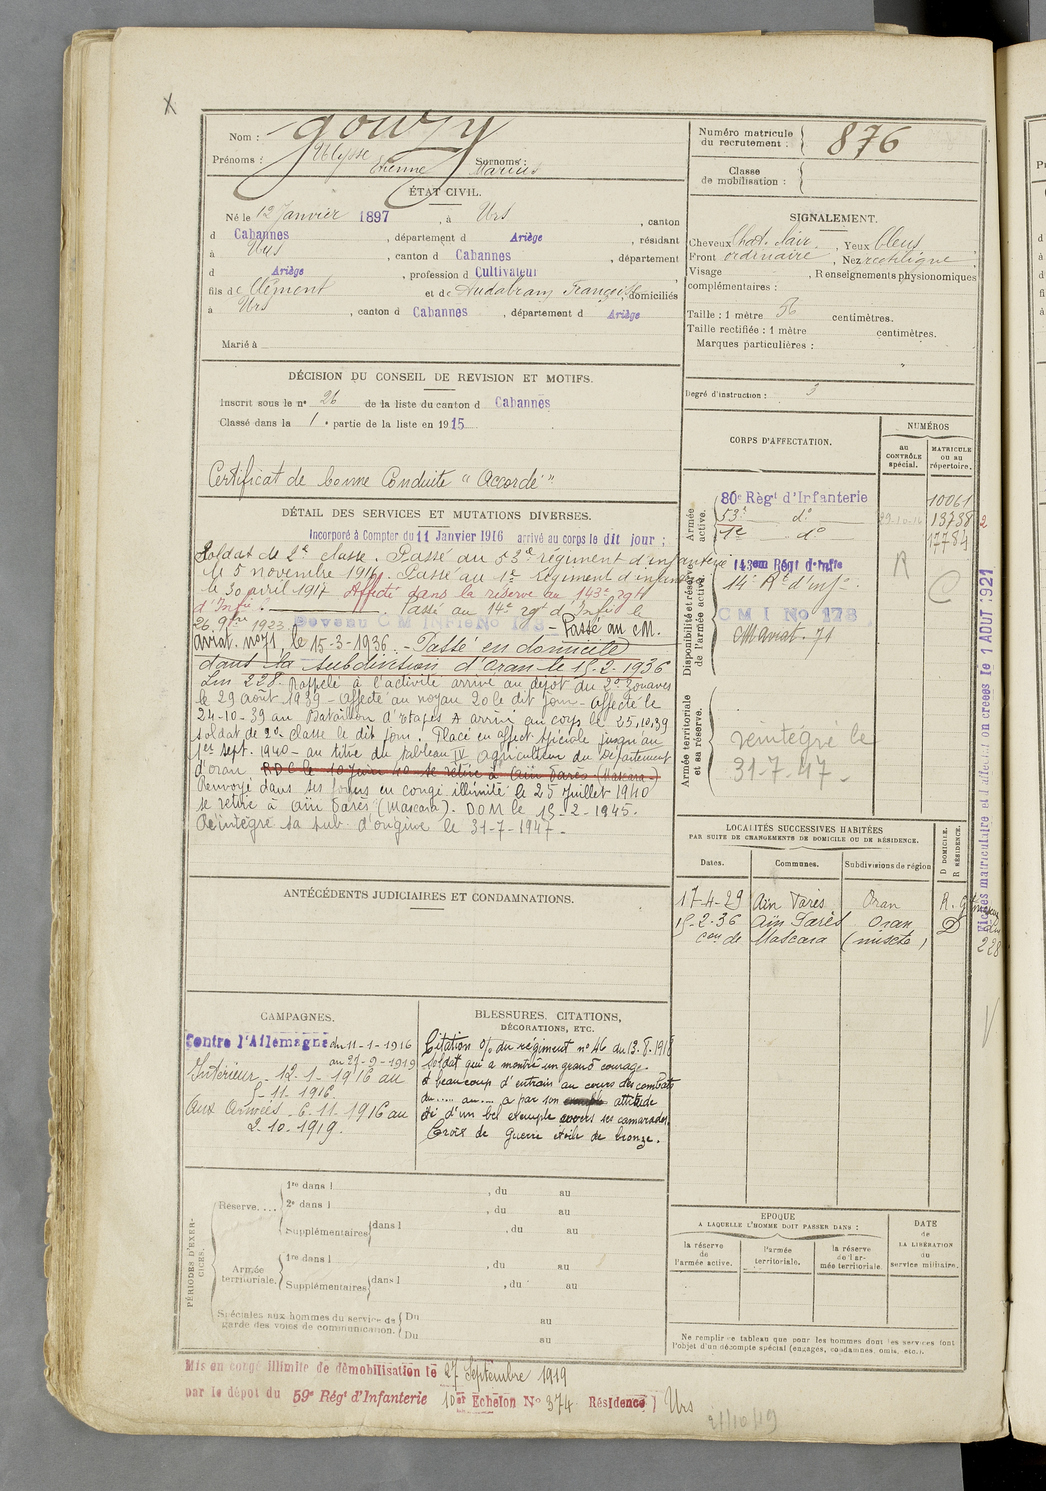 X
Nom : Gouzy
Prénoms : Ulysse Etienne Marius Surnoms :
Numéro matricule du recrutement : 876
Classe de mobilisation :
ÉTAT CIVIL.
Né le 12 Janvier 1897, à Urs, canton
d Cabannes, département d Ariège, résidant
à Urs, canton d Cabannes, département
d Ariège, profession d Cultivateur
fils de Clément et de Audabram Françoise, domiciliés
à Urs, canton d Cabannes, département d Ariège
Marié à
SIGNALEMENT.
Cheveux Chat. clair. Yeux bleus
Front ordinaire, Nez rectiligne
Visage , Renseignements physionomiques
complémentaires :
Taille : 1 mètre 56 centimètres.
Taille rectifiée : 1 mètre centimètres.
Marques particulières :
Degré d'instruction : 3
DÉCISION DU CONSEIL DE REVISION ET MOTIFS.
Inscrit sous le n° 26 de la liste du canton d Cabannes
Classé dans la 1e partie de la liste en 1915
Certificat de bonne Conduite "Accordé"
DÉTAIL DES SERVICES ET MUTATIONS DIVERSES.
Incorporé à Compter du 11 Janvier 1916 arrivé au corps le dit jour ;
Soldat de 2e classe. Passé au 53e régiment d'infanterie
le 5 novembre 1916. Passé au 1e régiment d'infanterie
le 30 avril 1917 Affecté dans la réserve au 143e rgt
d'Infie. Passé au 14e rgt d'Infie le
26.9bre 1923 Devenu C M INFie No 178 - Passé au CM.
aviat. no 71, le 15-3-1936. - Passé en domicile
dans la subdivision d'Oran le 15-2-1936
Lm 228. Rappelé à l'activité arrivé au dépôt du 2e Zouaves
le 29 août 1939 - affecté au noyau 20 le dit jour - Affecté le
24-10-39 au Bataillon d'Etapes A arrivé au corps le 25.10.39
soldat de 2e classe le dit jour. Placé en affect spéciale jusqu'au
1er sept. 1940 - au titre du tableau IV agriculteur du Département
d'Oran. RDC le 10 Juin 40 se retire à Aïn Farès (Mascara)
Renvoyé dans ses foyers en congé illimité le 25 Juillet 1940
se retire à Aïn Farès (Mascara). DOM le 15-2-1945.
Réintégré sa sub. d'origine le 31-7-1947 -
CORPS D'AFFECTATION.
NUMÉROS
au CONTRÔLE spécial.
MATRICULE ou au répertoire.
Armée active.
80e Régt d'Infanterie 10061
53e do 13738 2
1e do 17784
Disponibilité et réserve de l'armée active.
143em Régt d'Infie R
14e Rt d'Inf. C
C M I No 178
CM aviat. 71
Armée territoriale et sa réserve.
réintégré le
31-7-47 -
Fiches matriculaire et d'affectation créées le 1 AOUT 1921
LOCALITÉS SUCCESSIVES HABITÉES
PAR SUITE DE CHANGEMENTS DE DOMICILE OU DE RÉSIDENCE.
Dates. Communes. Subdivisions de région D DOMICILE. R RÉSIDENCE.
17-4-29 Aïn Farès Oran R.
15-2-36 Aïn Farès Oran D
con de Mascara (mixte) 228
ANTÉCÉDENTS JUDICIAIRES ET CONDAMNATIONS.
CAMPAGNES.
Contre l'Allemagne du 11-1-1916
au 27-9-1919
Intérieur - 12-1-1916 au
5-11-1916.
Aux Armées. 6.11.1916 au
2.10.1919.
BLESSURES, CITATIONS,
DÉCORATIONS, ETC.
Citation O/ du régiment no 46 du 13.8.1918
soldat qui a montré un grand courage
et beaucoup d'entrain au cours des combats
du..... au.... a par son attitude
été d'un bel exemple envers ses camarades.
Croix de guerre étoile de bronze.
PÉRIODES D'EXERCICES.
Réserve.... 1re dans l , du au
2e dans l , du au
Supplémentaires dans l , du au
Armée territoriale. 1re dans l , du au
Supplémentaires dans l , du au
Spéciales aux hommes du service de garde des voies de communication. Du au
Du au
EPOQUE
A LAQUELLE L'HOMME DOIT PASSER DANS :
la réserve de l'armée active.
l'armée territoriale.
la réserve de l'armée territoriale.
DATE de LA LIBÉRATION du service militaire.
Ne remplir ce tableau que pour les hommes dont les services font
l'objet d'un décompte spécial (engagés, condamnés, omis, etc.).
Mis en congé illimité de démobilisation le 27 Septembre 1919
par le dépôt du 59e Régt d'Infanterie 10er Echelon No 374 Résidence ) Urs